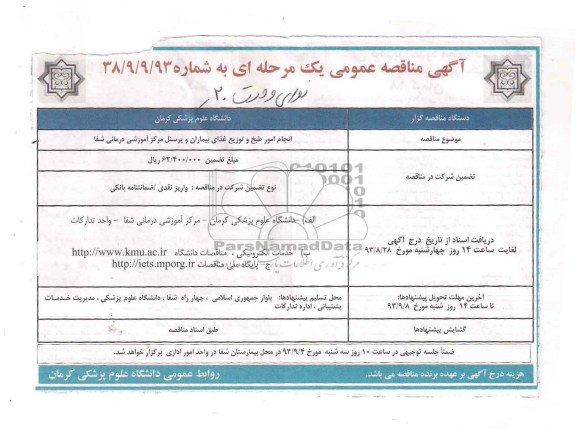 آگهی مناقصه عمومی یک مرحله ای به شماره ۳۸/۹/۹/۹۳
دستگاه مناقصه گزار
دانشگاه علوم پزشکی کرمان
موضوع مناقصه
انجام امور طبخ و توزیع غذای بیماران و پرسنل مرکز آموزشی درمانی شفا
تضمین شرکت در مناقصه
مبلغ تضمین ۶۲/۴۰۰/۰۰۰ ریال
نوع تضمین شرکت در مناقصه : واریز نقدی /ضمانتنامه بانکی
دریافت اسناد از تاریخ درج آگهی
لغایت ساعت ۱۴ روز چهارشنبه مورخ ۹۳/۸/۲۸
الف) -دانشگاه علوم پزشکی کرمان - مرکز آموزشی درمانی شفا - واحد تدارکات
ب) خدمات الکترونیکی ، مناقصات دانشگاه http://www.kmu.ac.ir
ج- پایگاه ملی مناقصات http://iets.mporg.ir
آخرین مهلت تحویل پیشنهادها:
تا ساعت ۱۴ روز شنبه مورخ ۹۳/۹/۸
محل تسلیم پیشنهادها: بلوار جمهوری اسلامی ، چهار راه شفا ، دانشگاه علوم پزشکی ، مدیریت خدمات
پشتیبانی ، اداره تدارکات
گشایش پیشنهادها
طبق اسناد مناقصه
ضمنا جلسه توجیهی در ساعت ۱۰ روز سه شنبه مورخ ۹۳/۹/۴ در محل بیمارستان شفا در واحد امور اداری برگزار خواهد شد.
هزینه درج آگهی بر عهده برنده مناقصه می باشد.
روابط عمومی دانشگاه علوم پزشکی کرمان
ParsNamadData